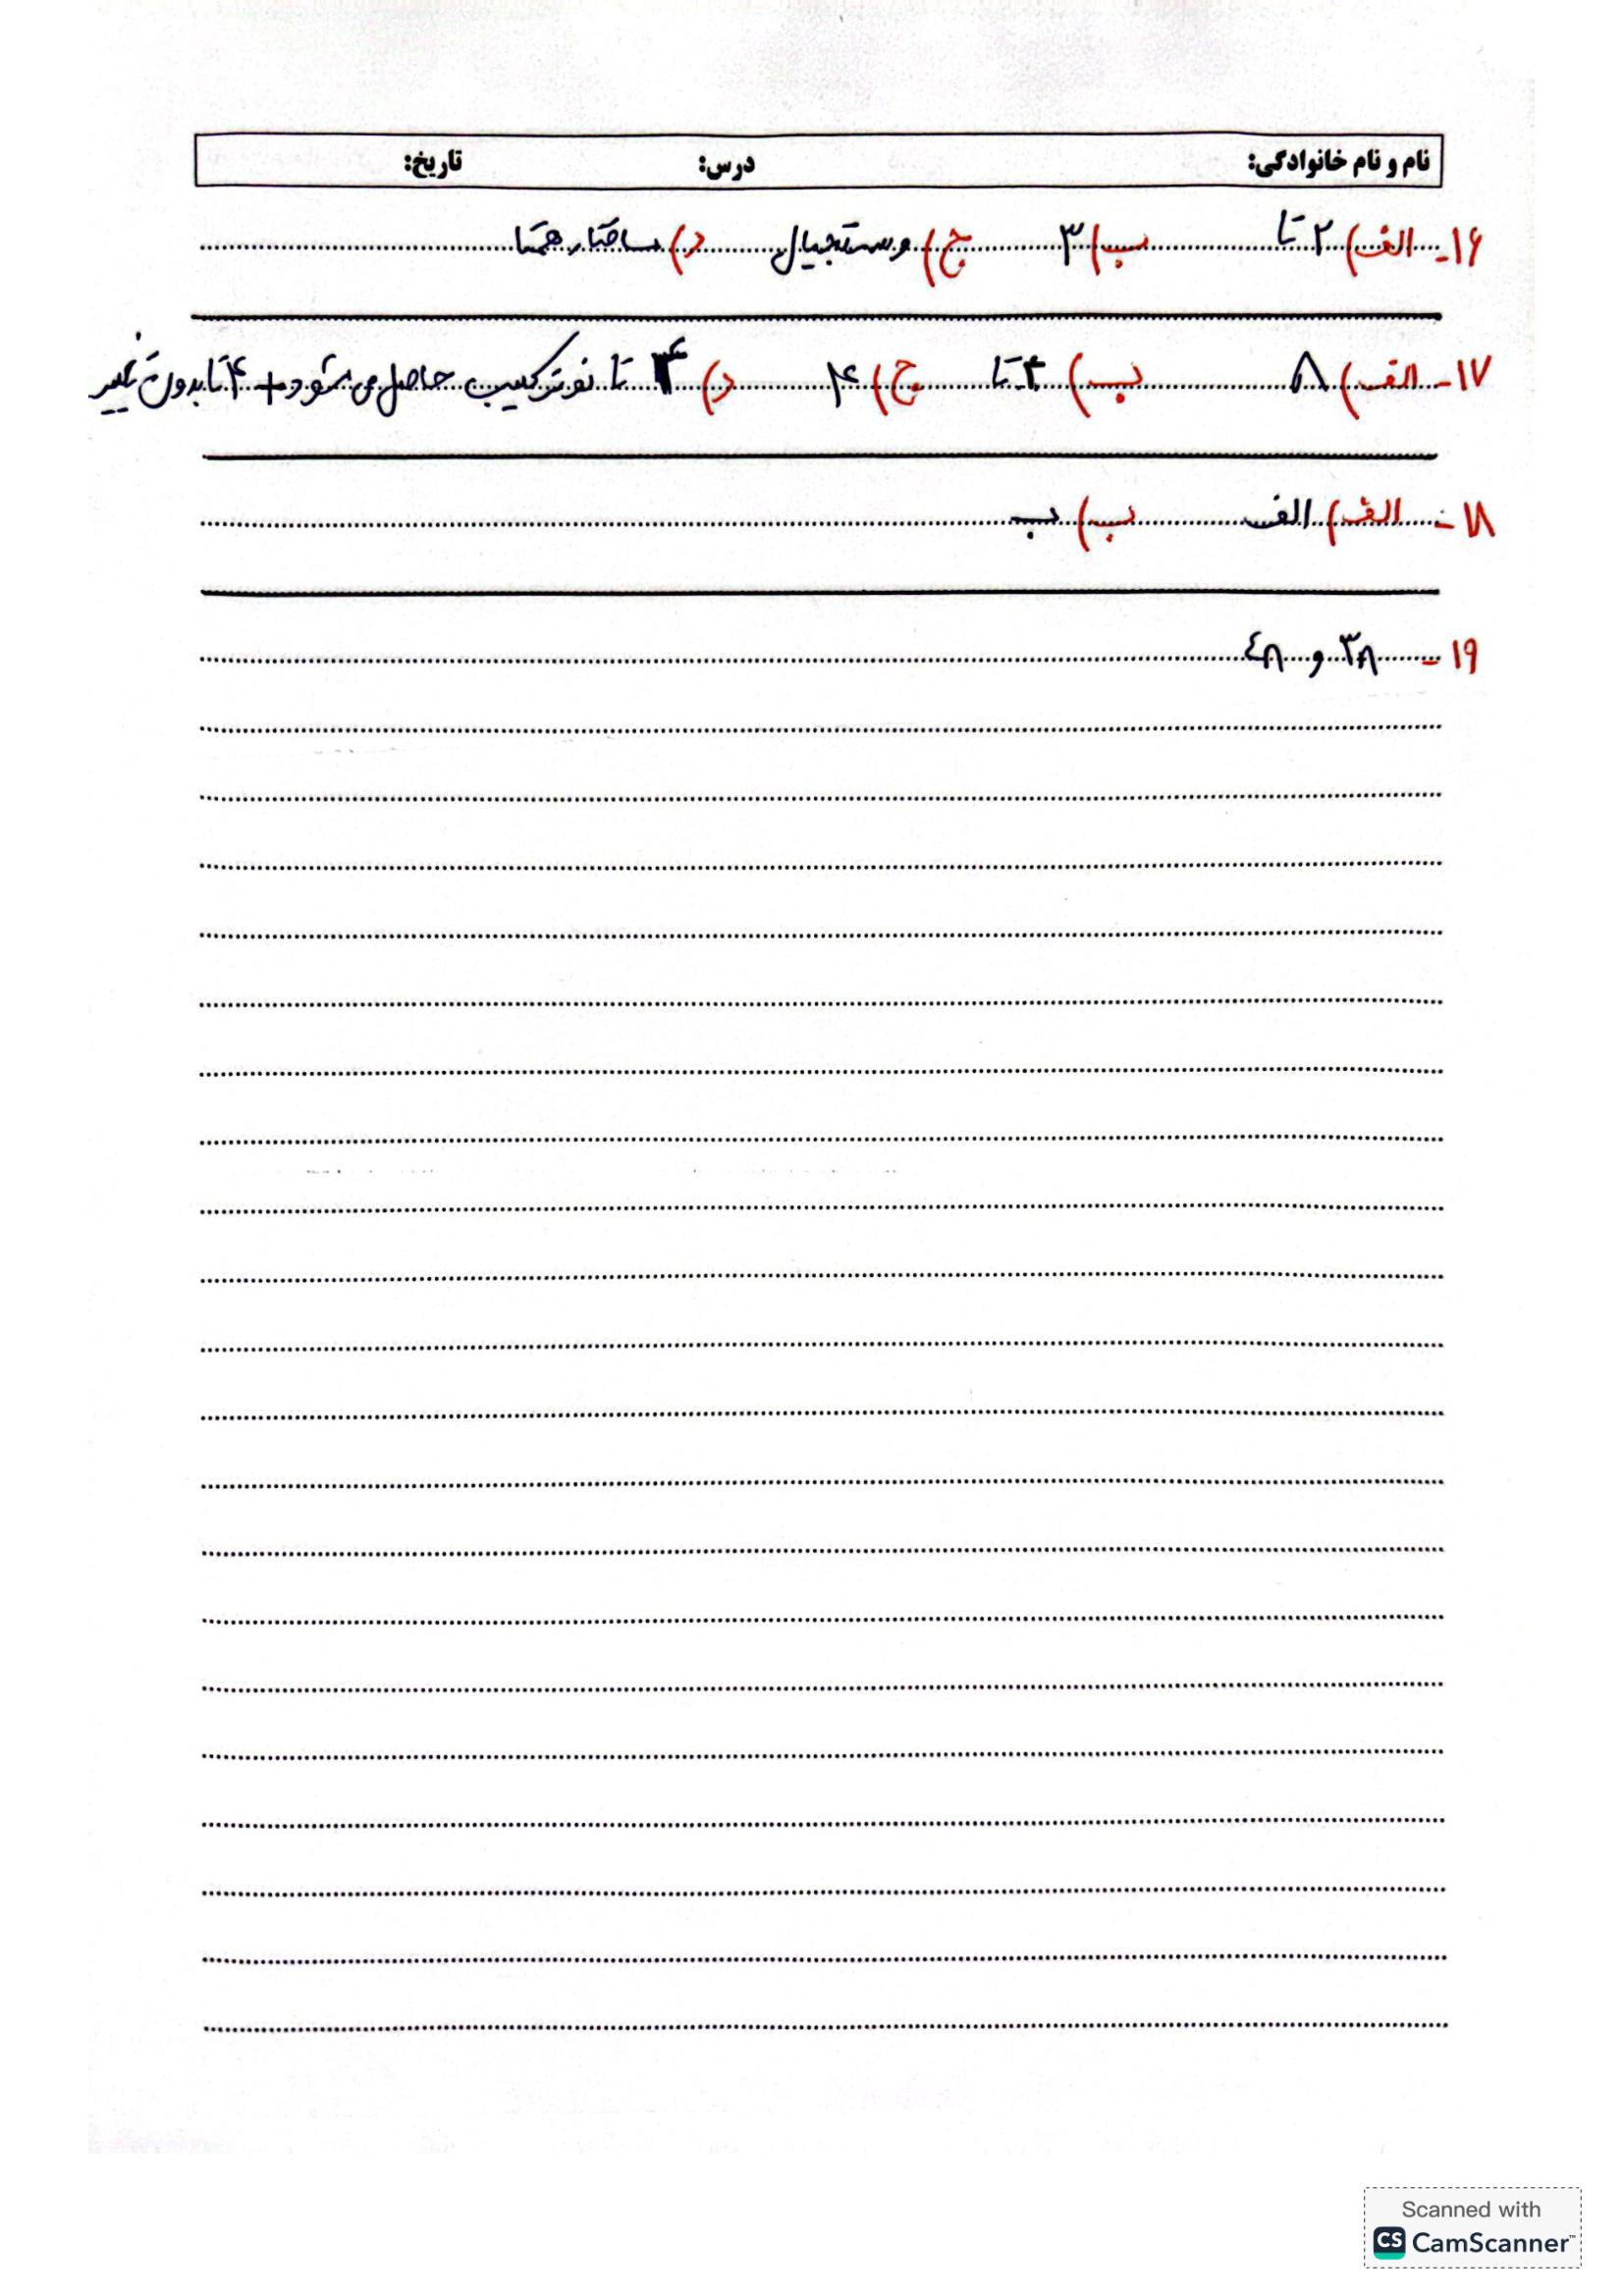 نام و نام خانوادگی: درس: تاریخ:
۱۶- الف) ۲ تا ب) ۳ ج) وستجیال د) ساختار همتا
۱۷- الف) ۸ ب) ۴ تا ج) ۴ د) ۴ تا نوترکیب حاصل می شود + ۴ تا بدون تغییر
۱۸- الف) الف ب) ب
۱۹- ۳۸ و ٤۸
Scanned with
CS CamScanner™